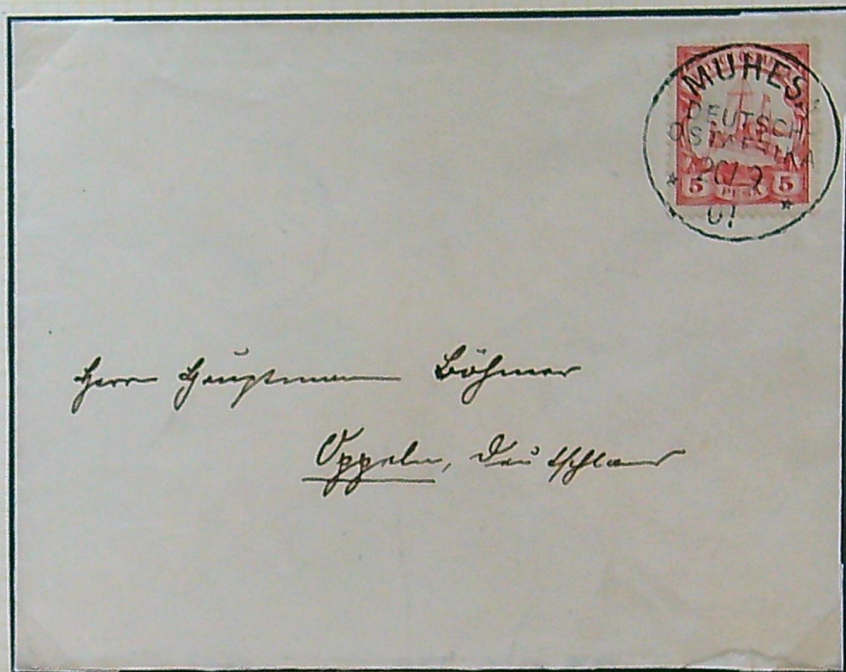 MUHESA
DEUTSCH
OSTAFRIKA
5 PESA 5
Herrn Hauptmann Böhmer
Oppeln, Deutschland